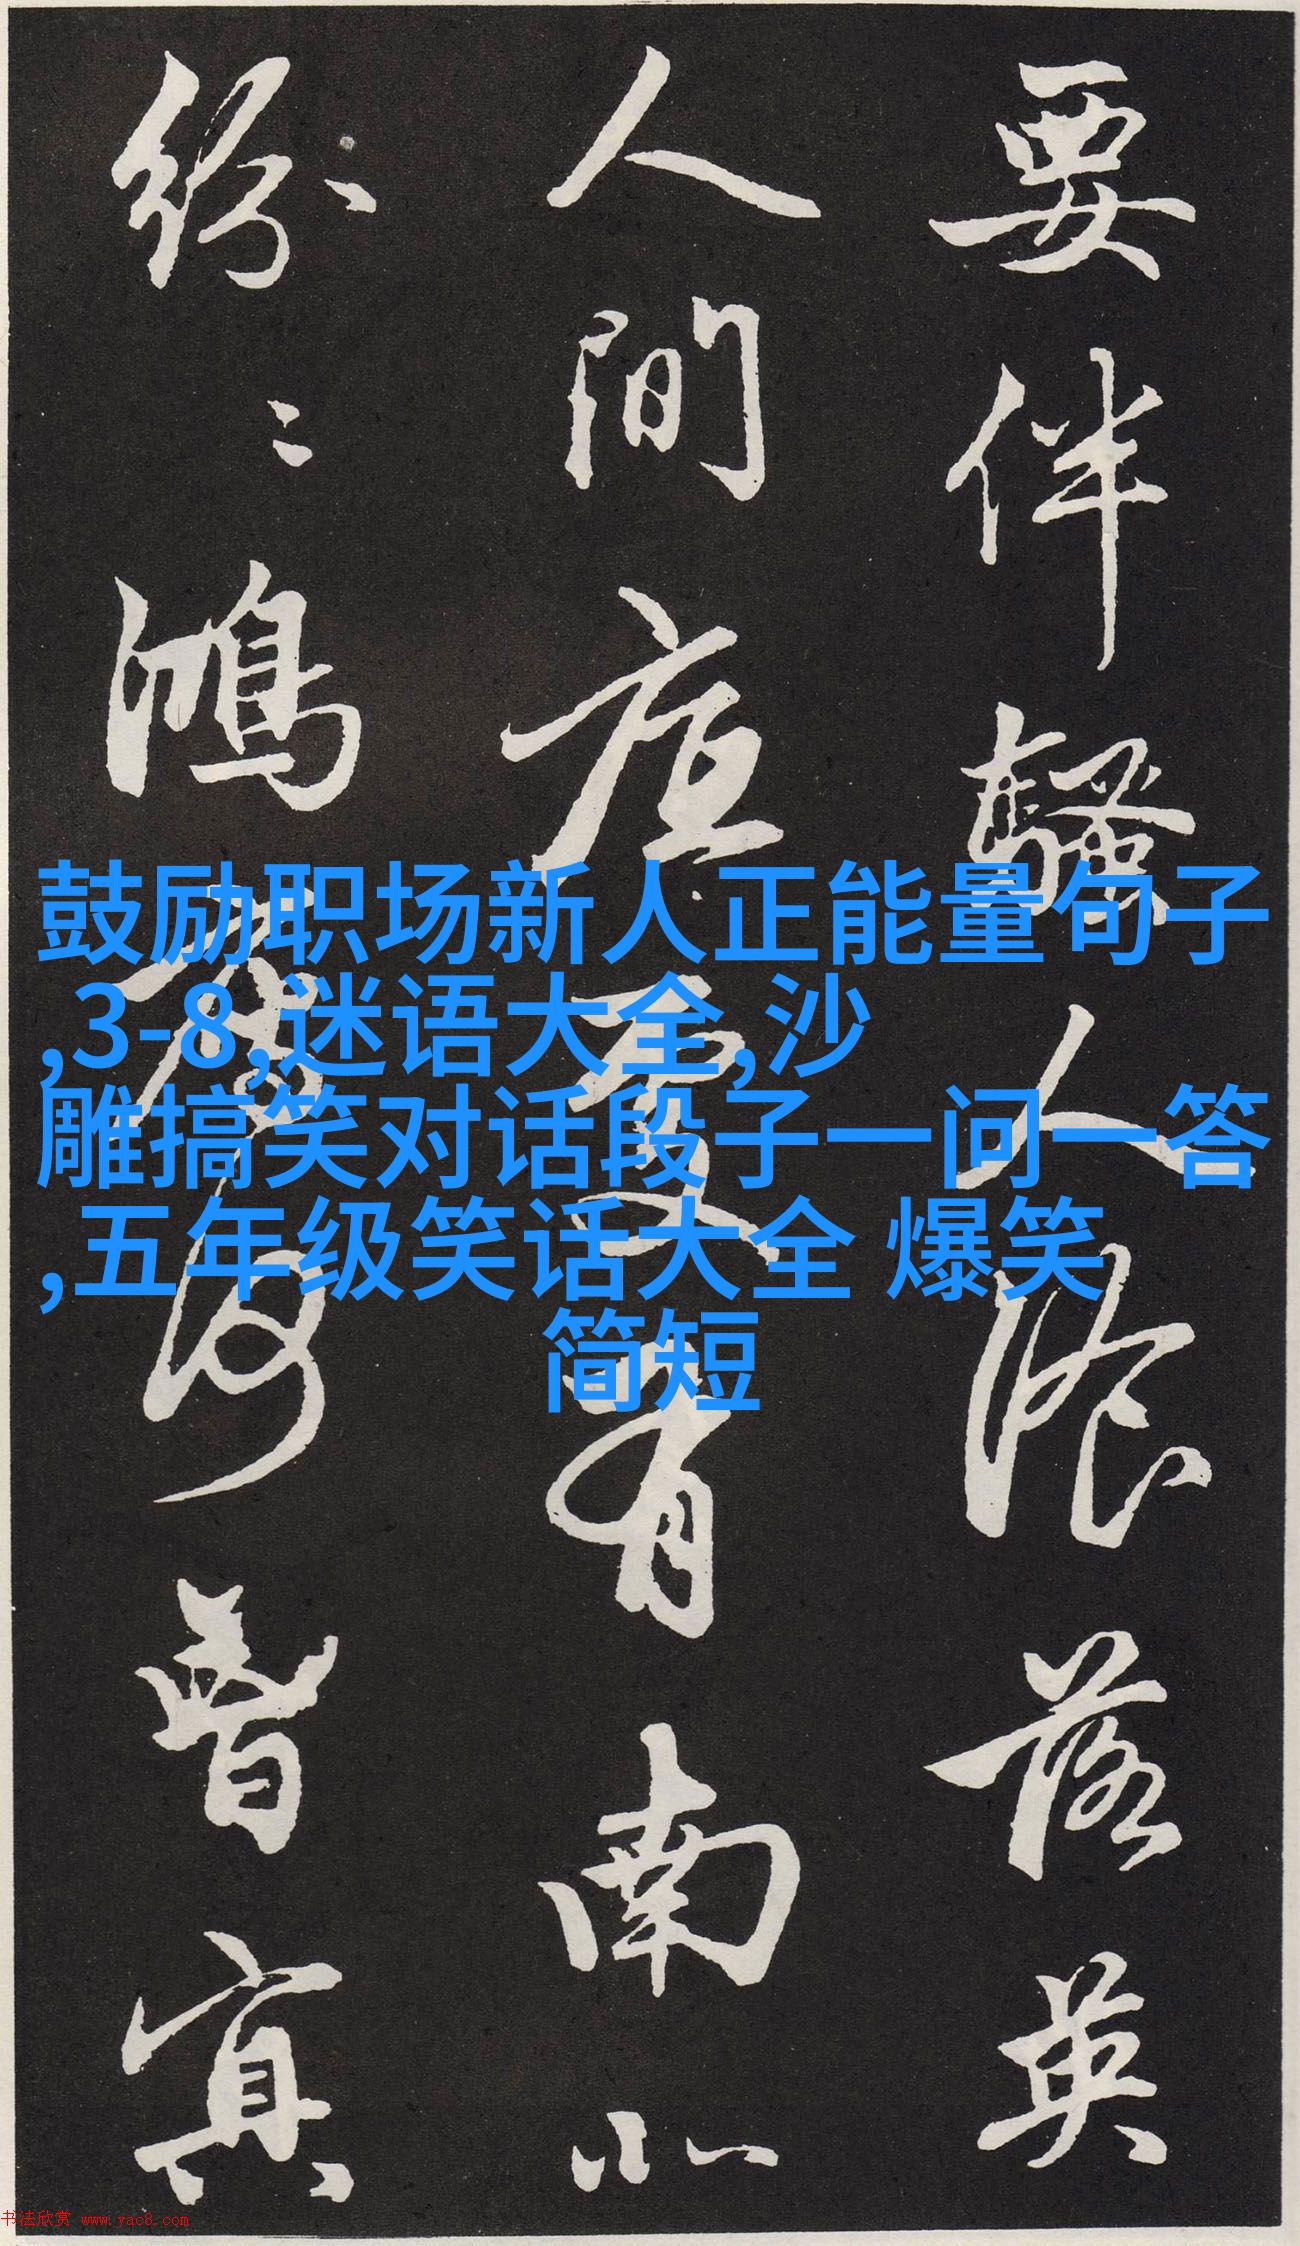 要伴騷人飡落英
人間底處有南北
紛〻鴻雁何曾冥
鼓励职场新人正能量句子
,3-8,迷语大全,沙
雕搞笑对话段子一问一答
,五年级笑话大全 爆笑
简短
书法欣赏 www.yac8.com